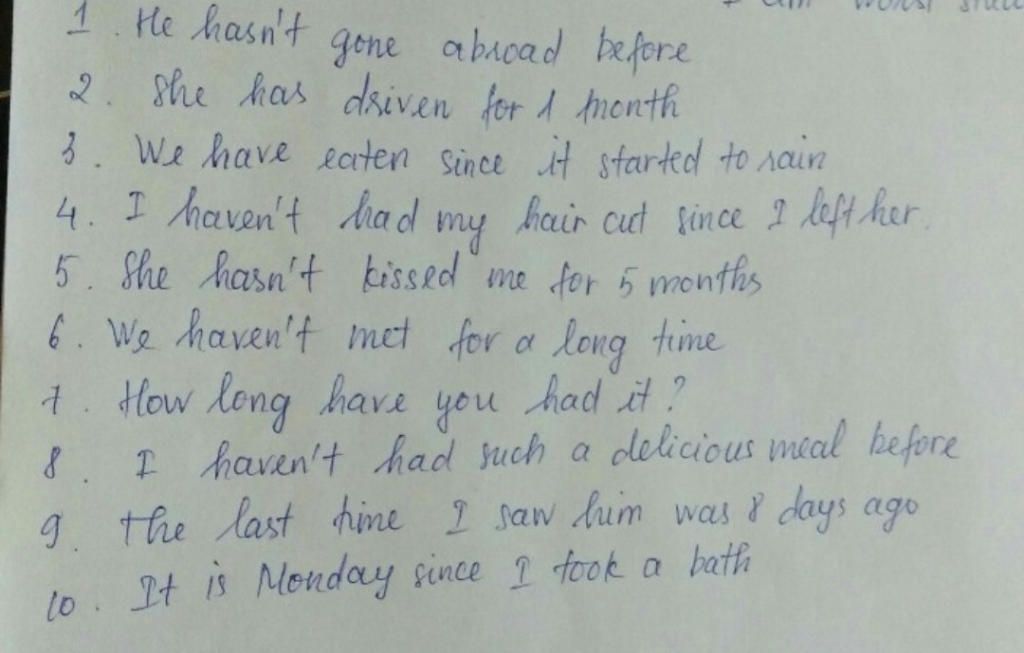 I am worst
1. He hasn't gone abroad before
2. She has driven for 1 month
3. We have eaten since it started to rain
4. I haven't had my hair cut since I left her.
5. She hasn't kissed me for 5 months
6. We haven't met for a long time
7. How long have you had it?
8. I haven't had such a delicious meal before
9. The last time I saw him was 8 days ago
10. It is Monday since I took a bath